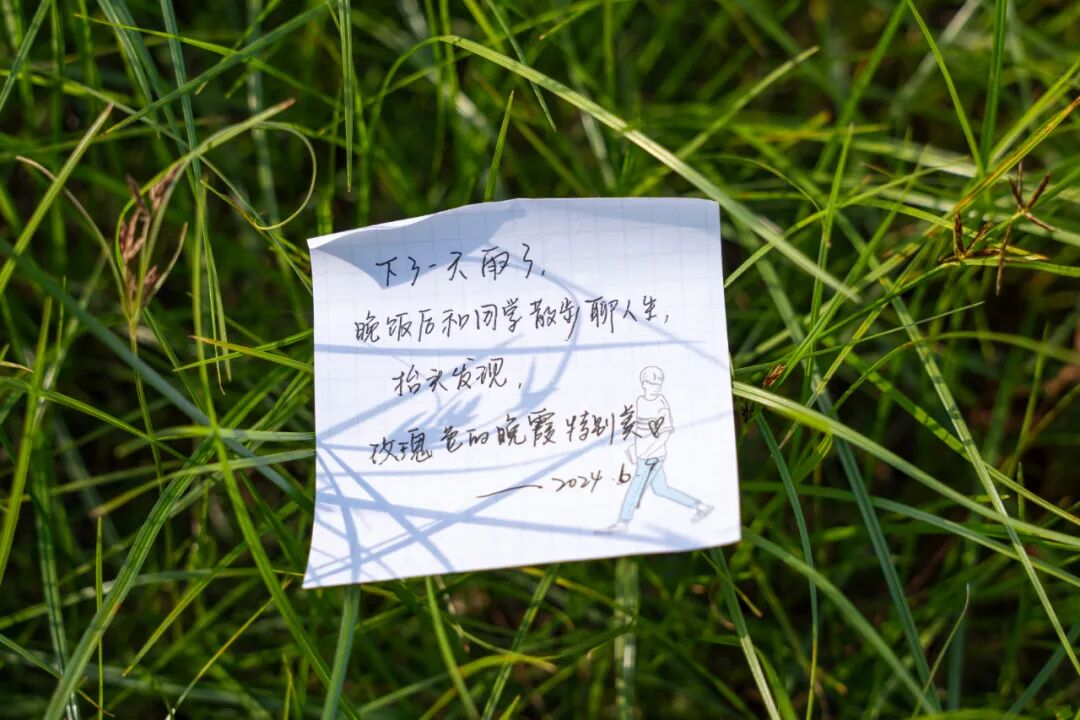 下了一天雨了,
晚饭后和同学散步聊人生,
抬头发现,
玫瑰色的晚霞特别美
——2024.6.9